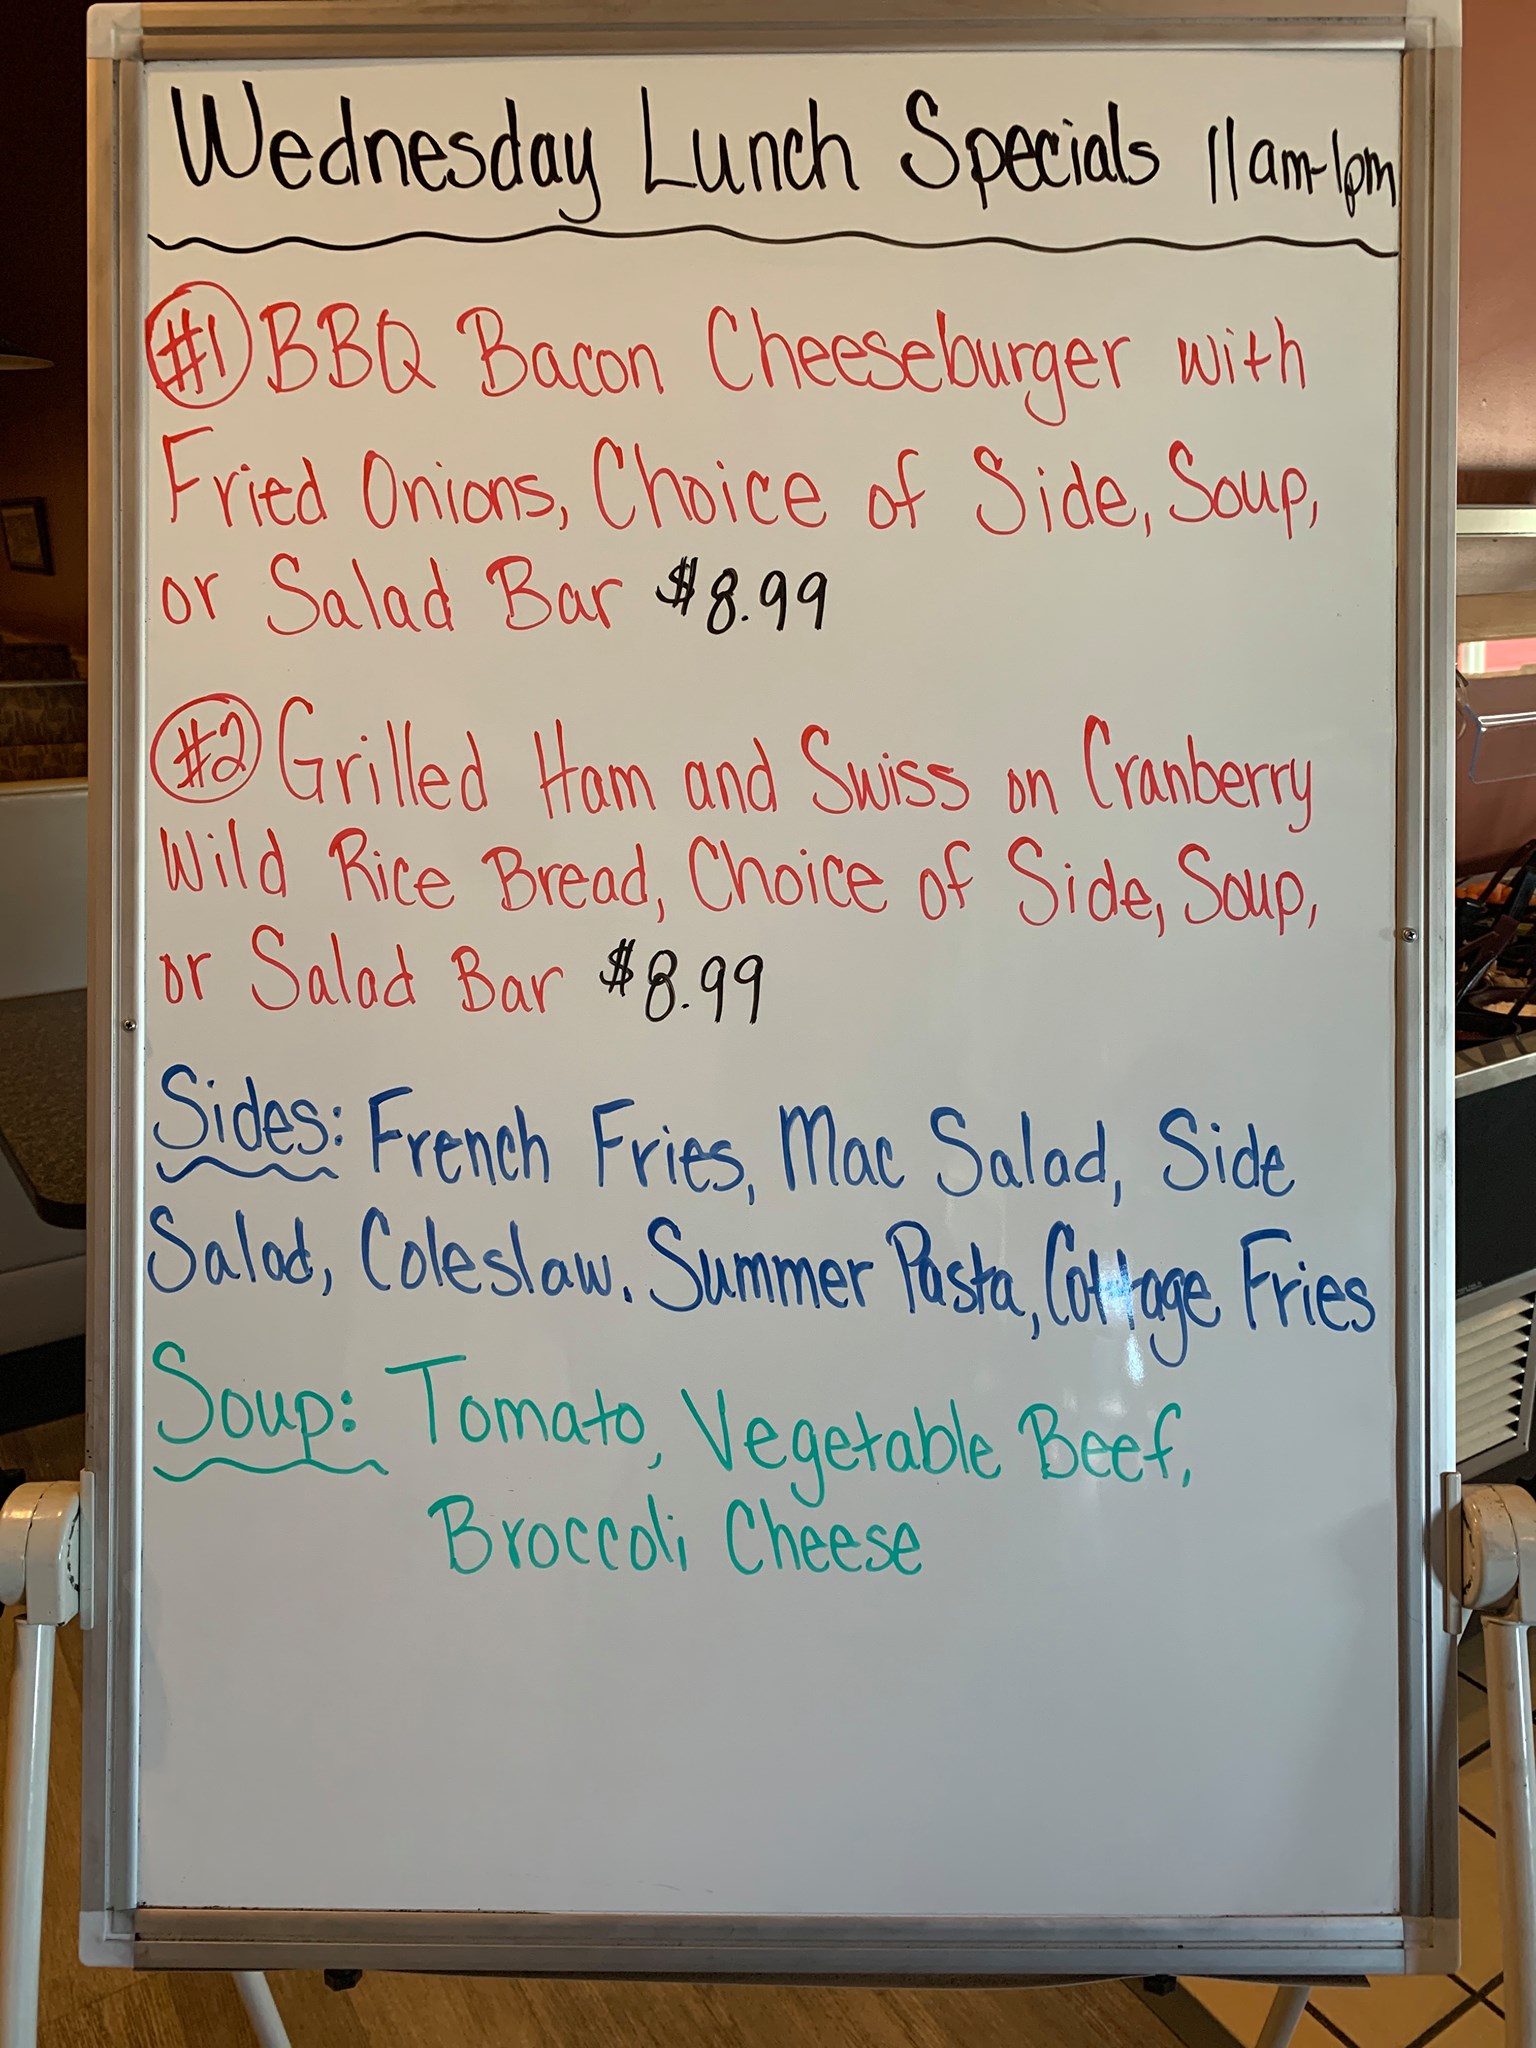 Wednesday Lunch Specials 11am-1pm
#1 BBQ Bacon Cheeseburger with
Fried Onions, Choice of Side, Soup,
or Salad Bar $8.99
#2 Grilled Ham and Swiss on Cranberry
Wild Rice Bread, Choice of Side, Soup,
or Salad Bar $8.99
Sides: French Fries, Mac Salad, Side
Salad, Coleslaw. Summer Pasta, Cottage Fries
Soup: Tomato, Vegetable Beef,
Broccoli Cheese